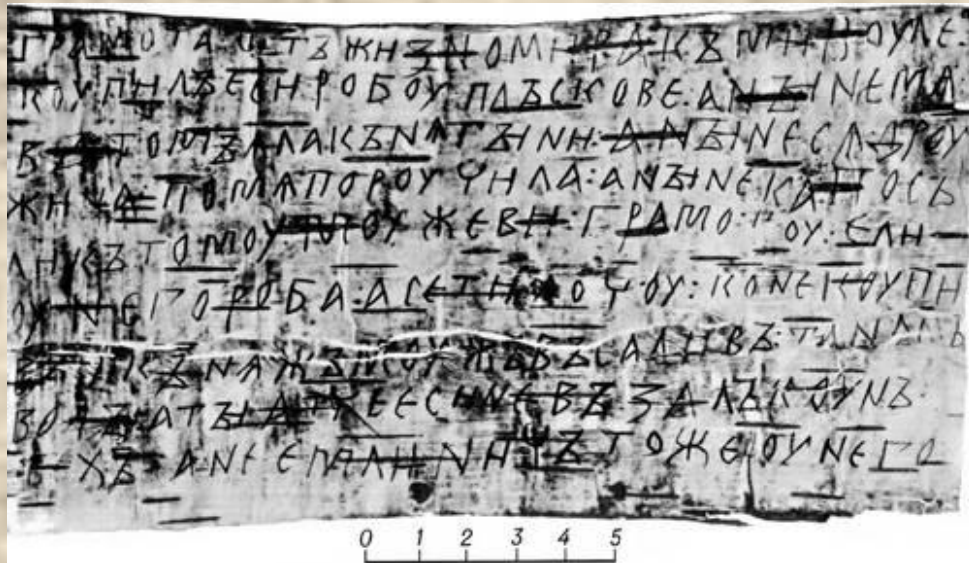 ГРАМОТА ѠТЪ ЖИЗНОМИРА КЪ МИКОУЛЕ
КОУПИЛЪ ЕСИ РОБОУ ПЛЪСКОВЕ : А НЪИНЕ МѦ
ВЪ ТОМЪ ѦЛА КЪНѦГЪИНИ : А НЪИНЕ СѦ ДРОУ
ЖИНА ПО МѦ ПОРОУЧИЛА : А НЪИНЕ КА ПОСЪ
ЛИ КЪ ТОМОУ МОУЖЕВИ : ГРАМОТОУ : ЕЛИ
ОУ НЕГО РОБА : А СЕ ТИ ХОЧОУ : КОНЕ КОУПИ
ВЪ И КЪНѦЖЪ МОУЖЪ ВЪСАДИВЪ : ТА НА СЪ
ВОДЪ А ТЪИ АТЧЕ ЕСИ НЕ ВЪЗАЛЪ КОУНЪ
ТЕХЪ А НЕ ЕМЛИ НИЧЪТО ЖЕ ОУ НЕГО
0 1 2 3 4 5